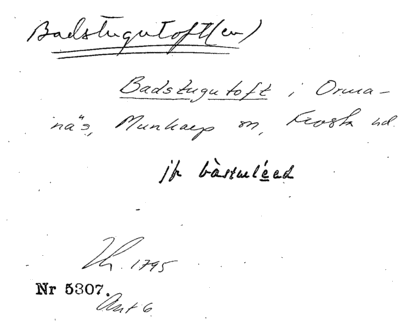 Badstugutoft(en)
Badstugutoft i Orma-
näs, Munkarp sn, Frosta hd.
jfr
1795
Nr 5307.
Ant 6